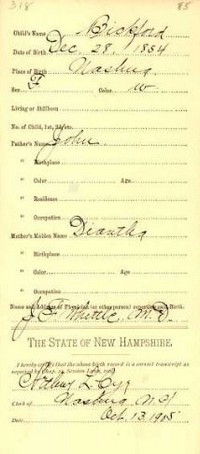 318 85
Child's Name Bickford
Date of Birth Dec 28, 1854
Place of Birth Nashua
Sex F Color, W
Living or Stillborn
No. of Child, 1st, 2d, etc.
Father's Name John
" Birthplace
" Color Age,
" Residence
" Occupation
Mother's Maiden Name Diantha
" Birthplace
" Color Age,
" Residence
" Occupation
Name and Address of Physician (or other person) reporting said Birth.
J. C. Whittle, M. D.
THE STATE OF NEW HAMPSHIRE.
I hereby certify that the above birth record is a correct transcript as
required by Chap. Session Laws,
Arthur L. Cyr
Clerk of Nashua N.H.
Date, Oct. 13, 1905